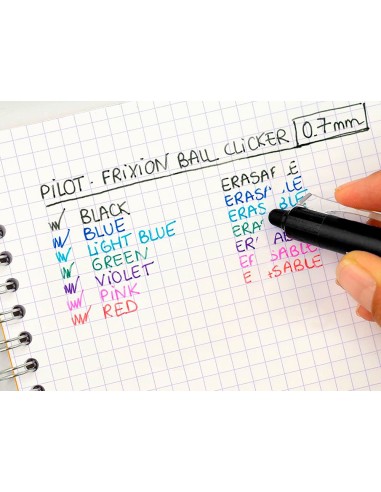 PILOT - FRIXION BALL CLICKER 0.7mm
BLACK
BLUE
LIGHT BLUE
GREEN
VIOLET
PINK
RED
ERASA E
ERASA LE
ERAS BLE
ERA
ER ABLE
E SABLE
E SABLE